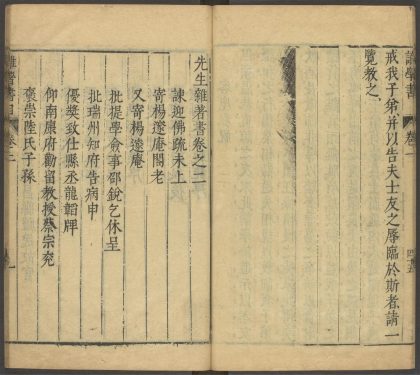 戒我子弟并以告夫士友之辱臨於斯者請一
覽教之
先生雜著書卷之二
諫迎佛疏未上
寄楊邃庵閣老
又寄楊邃庵
批提學僉事邵銳乞休呈
批瑞州知府告病申
優奬致仕縣丞龍韜牌
仰南康府勸留教授蔡宗兗
褒崇陸氏子孫